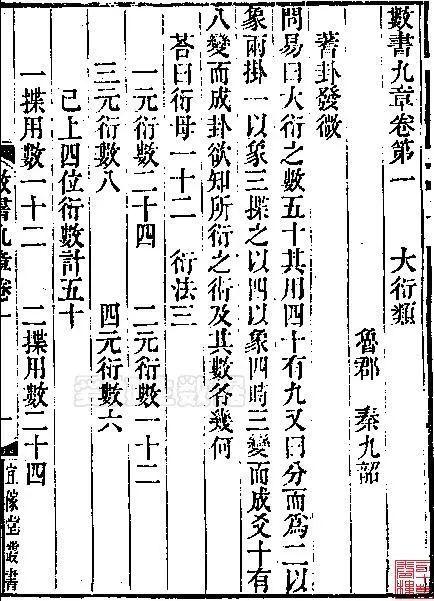 數書九章卷第一　　大衍類
魯郡　秦九韶
蓍卦發微
問易曰大衍之數五十其用四十有九又曰分而為二以
象兩掛一以象三揲之以四以象四時三變而成爻十有
八變而成卦欲知所衍之術及其數各幾何
荅曰衍母一十二　衍法三
一元衍數二十四　二元衍數一十二
三元衍數八　四元衍數六
已上四位衍數計五十
一揲用數一十二　二揲用數二十四
數書九章卷一　一　宜稼堂叢書